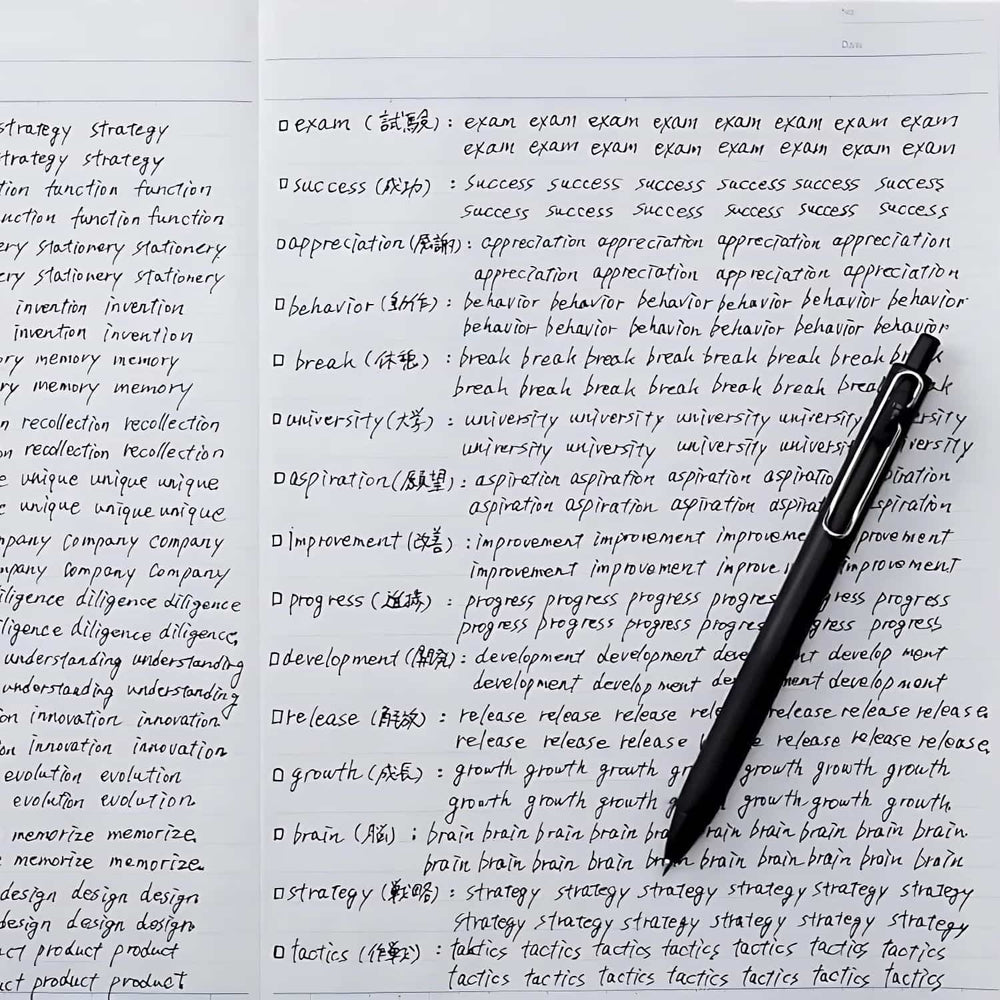 strategy strategy
strategy strategy
function function
function function
stationery stationery
stationery stationery
invention invention
invention invention
memory memory
memory memory
recollection recollection
recollection recollection
unique unique
unique unique unique
company company
company company
diligence diligence
diligence diligence
understanding understanding
understanding understanding
innovation innovation
innovation innovation
evolution evolution
evolution evolution
memorize memorize
memorize memorize
design design
design design design
product product
product product
No.
Date
□ exam (試験): exam exam exam exam exam exam exam exam
exam exam exam exam exam exam exam exam
□ success (成功) : success success success success success success
success success success success success success
□ appreciation (感謝): appreciation appreciation appreciation appreciation
appreciation appreciation appreciation appreciation
□ behavior (動作) : behavior behavior behavior behavior behavior behavior
behavior behavior behavior behavior behavior behavior
□ break (休憩) : break break break break break break break
break break break break break break
□ university (大学) : university university university university
university university university
□ aspiration (願望) : aspiration aspiration aspiration
aspiration aspiration aspiration
□ improvement (改善) : improvement improvement
improvement improvement
□ progress (進捗) : progress progress progress progress
progress progress progress progress
□ development (開発): development development development
development development development
□ release (解放) : release release release release release release
release release release release release release
□ growth (成長) : growth growth growth growth growth growth
growth growth growth growth growth growth
□ brain (脳) : brain brain brain brain brain brain brain brain
brain brain brain brain brain brain brain brain brain
□ strategy (戦略) : strategy strategy strategy strategy strategy strategy
strategy strategy strategy strategy strategy strategy
□ tactics (作戦) : tactics tactics tactics tactics tactics tactics tactics
tactics tactics tactics tactics tactics tactics tactics